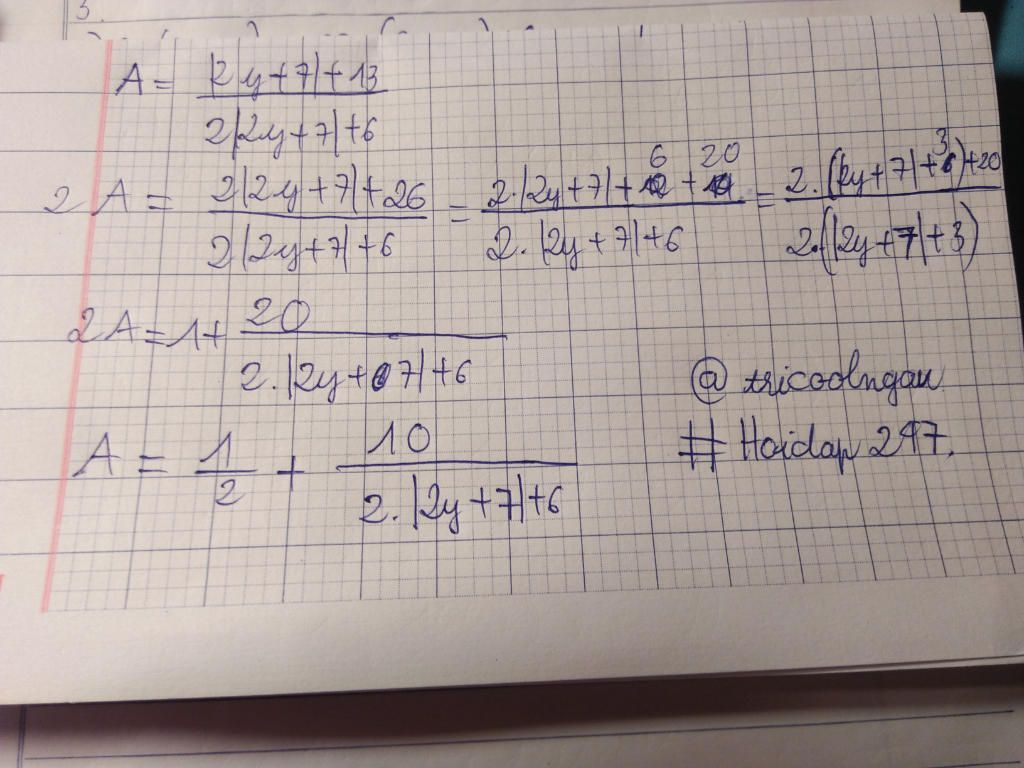 3.
A = |2y+7|+13 / 2|2y+7|+6
2A = 2|2y+7|+26 / 2|2y+7|+6 = 2.|2y+7|+6+20 / 2.|2y+7|+6 = 2.(|2y+7|+3)+20 / 2.(|2y+7|+3)
2A = 1 + 20 / 2.|2y+7|+6
@tricoolngau
A = 1/2 + 10 / 2.|2y+7|+6
# Hoidap 247.